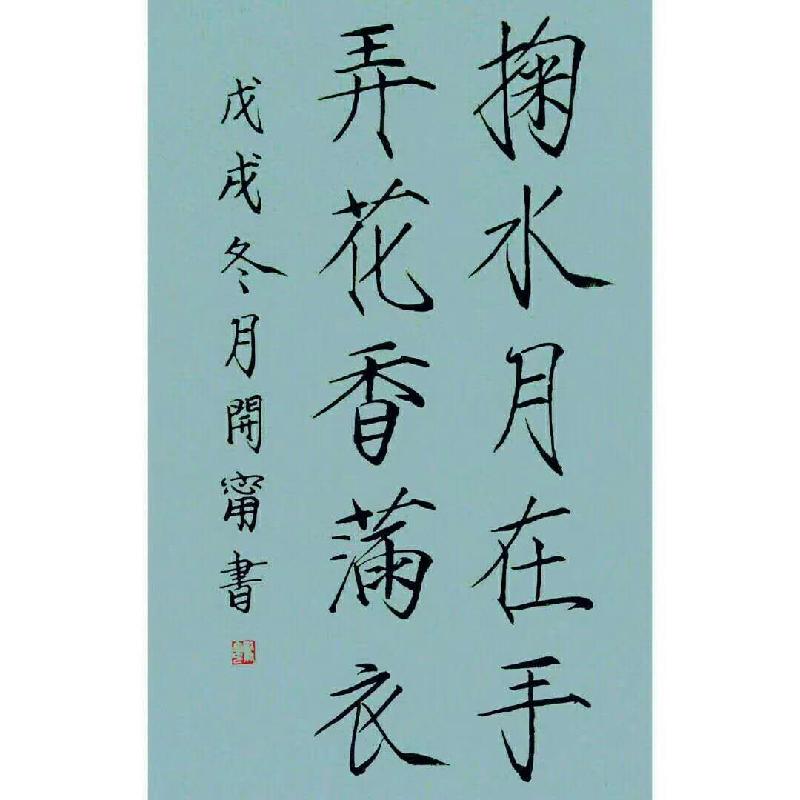 掬水月在手
弄花香滿衣
戊戌冬月開甯書